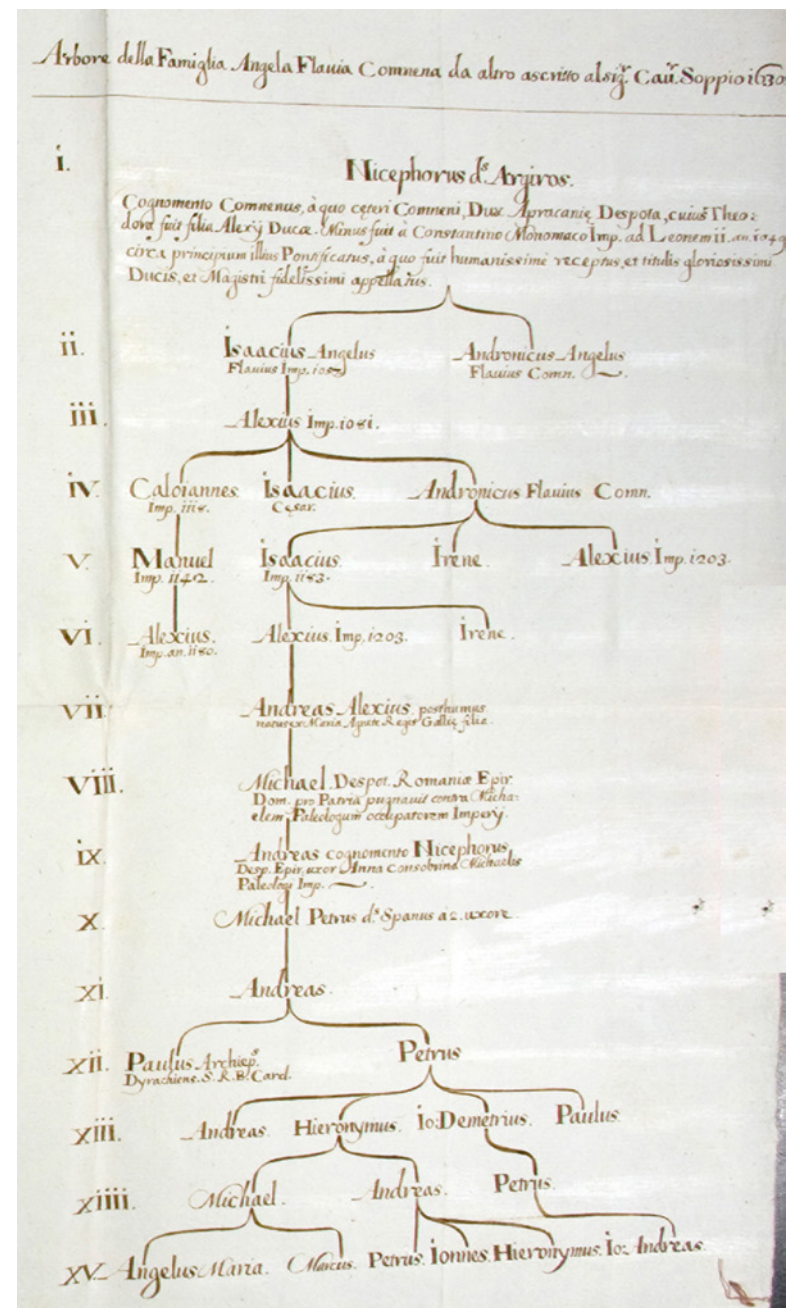 Arbore della Famiglia Angela Flavia Comnena da altro ascritto al sigr. Caur. Soppio 1630
i. Nicephorus ds. Argiros.
Cognomento Comnenus, à quo ceteri Comneni, Dux Apracanię Despota, cuius Theo=
dora fuit filia Alexij Ducæ. Minus fuit à Constantino Monomaco Imp. ad Leonem ii. an. 1049
circa principium illius Pontificatus, à quo fuit humanissimè receptus, et titulis gloriosissimi
Ducis, et Magistri fidelissimi appellatus.
ii. Isaacius Angelus Andronicus Angelus
Flauius Imp. Flauius Comn.
iii. Alexius Imp. 1081.
iv. Caloiannes. Isaacius. Andronicus Flauius Comn.
Imp. 1118. Cęsar.
v. Manuel Isaacius. Irene. Alexius Imp. 1203.
Imp. 1142. Imp. 1183.
vi. Alexius. Alexius Imp. 1203. Irene.
Imp. an. 1180.
vii. Andreas Alexius posthumus
natus ex Maria Agnete Regis Gallię filia.
viii. Michael Despot. Romaniæ Epir.
Dom. pro Patria pugnauit contra Micha=
elem Paleologum occupatorem Imperij.
ix. Andreas cognomento Nicephorus,
Desp. Epir. uxor Anna Consobrina Michaelis
Paleologi Imp.
x. Michael Petrus ds. Spanus à 2. uxore.
xi. Andreas.
xii. Paulus Archieps. Petrus
Dyrachiens. S. R. E. Card.
xiii. Andreas. Hieronymus. Io: Demetrius. Paulus.
xiiii. Michael. Andreas. Petrus.
xv. Angelus Maria. Marcus. Petrus. Ionnes. Hieronymus. Io: Andreas.